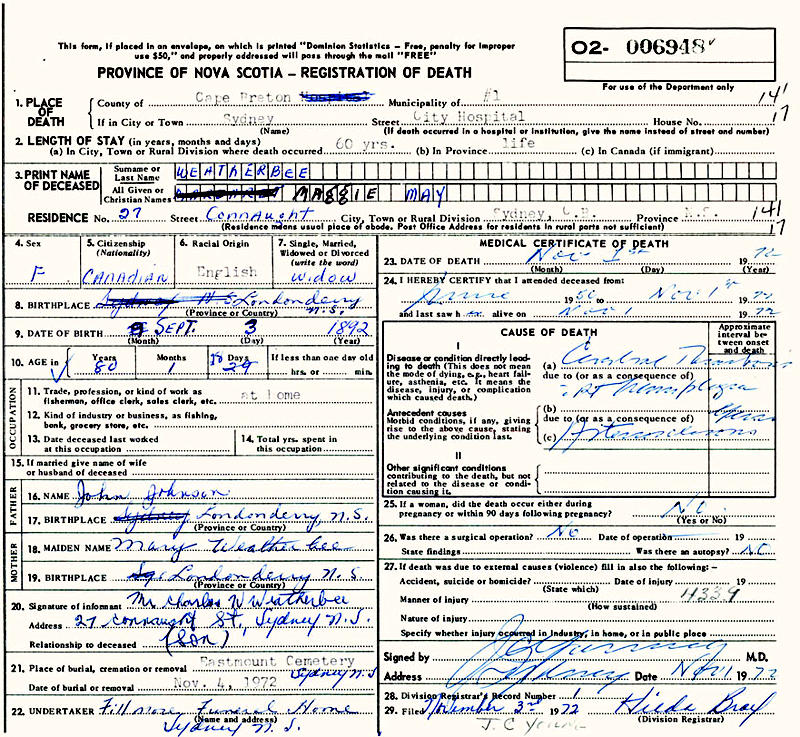 This form, if placed in an envelope, on which is printed "Dominion Statistics – Free, penalty for improper
use $50," and properly addressed will pass through the mail "FREE"
02- 006948
PROVINCE OF NOVA SCOTIA – REGISTRATION OF DEATH
For use of the Department only
141
17
1. PLACE OF DEATH
County of Cape Breton Hospital Municipality of #1
If in City or Town Sydney Street City Hospital House No.
(Name) (If death occurred in a hospital or institution, give the name instead of street and number)
2. LENGTH OF STAY (in years, months and days)
(a) In City, Town or Rural Division where death occurred 60 yrs. (b) In Province life (c) In Canada (if immigrant)
3. PRINT NAME OF DECEASED
Surname or Last Name WEATHERBEE
All Given or Christian Names MAGGIE MAY
RESIDENCE No. 27 Street Connaught City, Town or Rural Division Sydney, C.B. Province N.S.
(Residence means usual place of abode. Post Office Address for residents in rural parts not sufficient)
141
17
4. Sex
F
5. Citizenship (Nationality)
CANADIAN
6. Racial Origin
English
7. Single, Married, Widowed or Divorced (write the word)
Widow
8. BIRTHPLACE Sydney Londonderry N.S.
(Province or Country)
9. DATE OF BIRTH SEPT. 3 1892
(Month) (Day) (Year)
10. AGE in
Years 80
Months 1
Days 29
If less than one day old
hrs. or min.
OCCUPATION
11. Trade, profession, or kind of work as fisherman, office clerk, sales clerk, etc. at home
12. Kind of industry or business, as fishing, bank, grocery store, etc.
13. Date deceased last worked at this occupation
14. Total yrs. spent in this occupation
15. If married give name of wife or husband of deceased
FATHER
16. NAME John Johnson
17. BIRTHPLACE Sydney Londonderry, N.S.
(Province or Country)
MOTHER
18. MAIDEN NAME Mary Weatherbee
19. BIRTHPLACE Londonderry N.S
(Province or Country)
20. Signature of informant Mr Charles W Weatherbee
Address 27 Connaught St, Sydney N.S.
Relationship to deceased (Son)
21. Place of burial, cremation or removal Eastmount Cemetery Sydney N.S
Date of burial or removal Nov. 4, 1972
22. UNDERTAKER Fillmore Funeral Home
(Name and address)
Sydney N.S.
MEDICAL CERTIFICATE OF DEATH
23. DATE OF DEATH Nov 1st 1972
(Month) (Day) (Year)
24. I HEREBY CERTIFY that I attended deceased from:
June 1950 to Nov 1st 1972
and last saw h alive on Nov 1 1972
CAUSE OF DEATH
Approximate interval between onset and death
I
Disease or condition directly leading to death (This does not mean the mode of dying, e.g., heart failure, asthenia, etc. It means the disease, injury, or complication which caused death.)
(a) Cerebral Thrombosis
due to (or as a consequence of)
Hemiplegia
Antecedent causes
Morbid conditions, if any, giving rise to the above cause, stating the underlying condition last.
(b)
due to (or as a consequence of) years
(c) Arteriosclerosis
II
Other significant conditions contributing to the death, but not related to the disease or condition causing it.
25. If a woman, did the death occur either during pregnancy or within 90 days following pregnancy? No
(Yes or No)
26. Was there a surgical operation? No Date of operation 19
State findings Was there an autopsy? No
27. If death was due to external causes (violence) fill in also the following:–
Accident, suicide or homicide? Date of injury 19
(State which)
Manner of injury 4339
(How sustained)
Nature of injury
Specify whether injury occurred in industry, in home, or in public place
Signed by M.D.
Address Sydney Date Nov 1 1972
28. Division Registrar's Record Number 1
29. Filed November 3rd 1972 Hilda Bray
(Division Registrar)
J.C